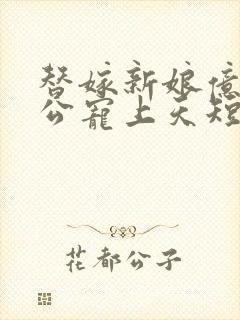 替嫁新娘億
公寵上天短
花都公子